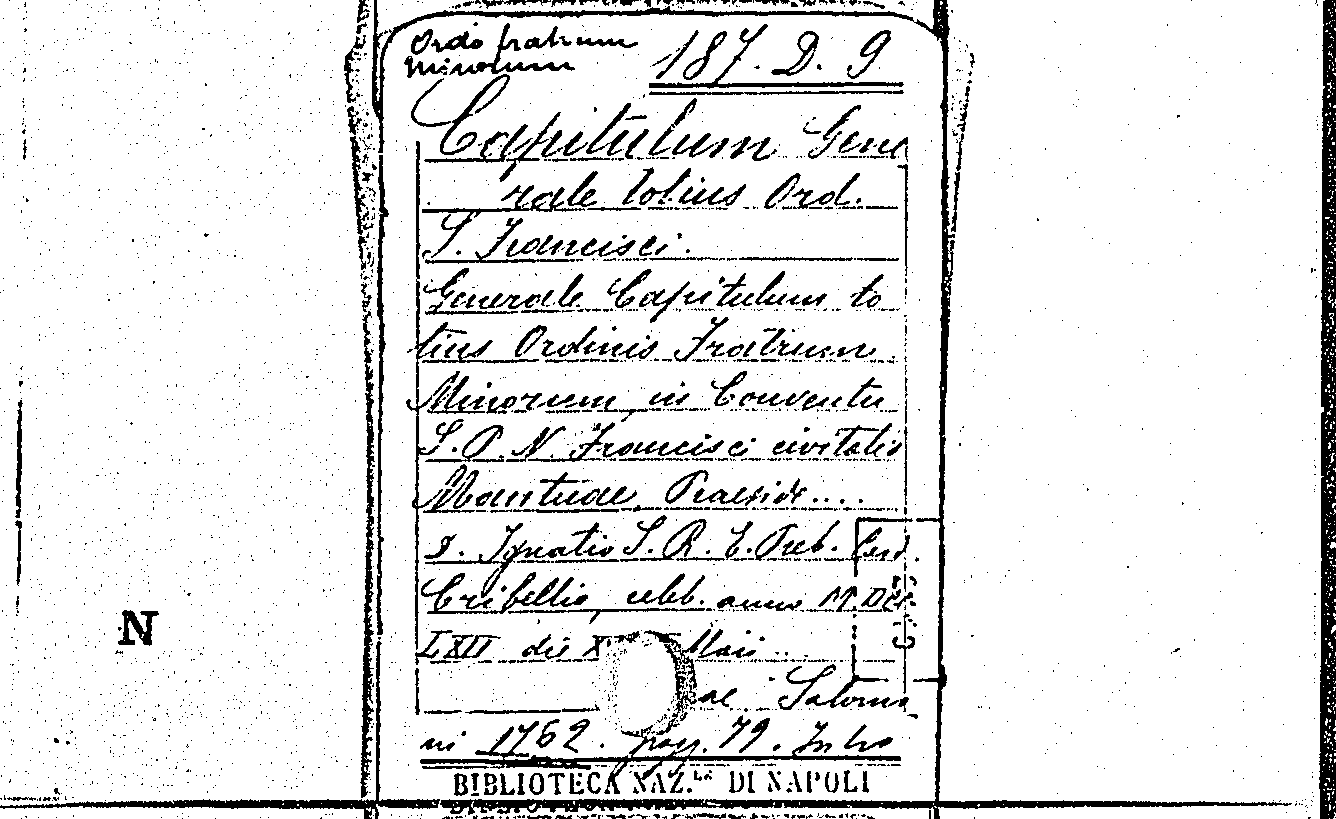 Ordo fratrum
minorum
187. D. 9
Capitulum Gene
rale totius Ord.
S. Francisci.
Generale Capitulum to
tius Ordinis Fratrum
Minorum, in Conventu
S. P. N. Francisci civitatis
Mantuae, Praeside....
D. Ignatio S. R. E. Presb. Card.
Cribellio, celeb. anno MDCC
LXII die Maii...
Saloma
ni 1762. pag. 79. In bro
BIBLIOTECA NAZ.LE DI NAPOLI
N